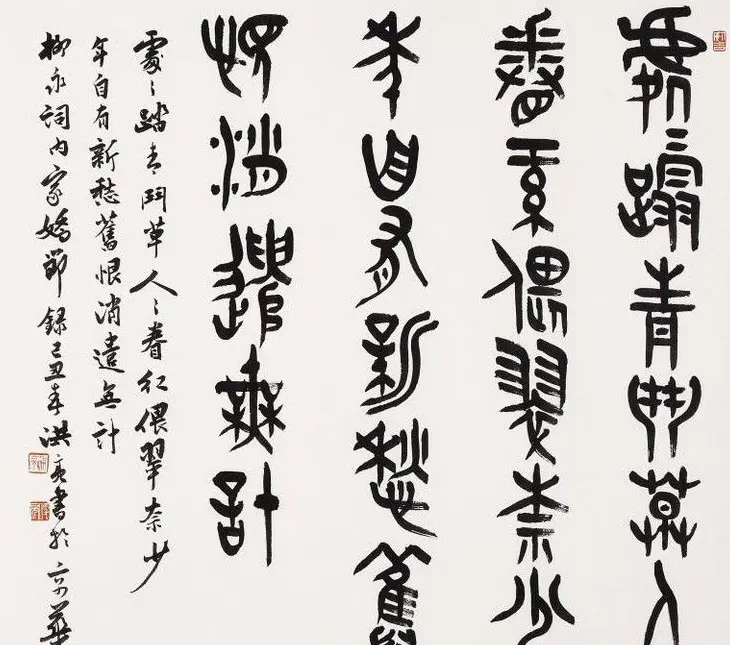 處〻踏青鬥草人
眷紅偎翠奈少
年自有新愁舊
恨消遣無計
處〻踏青鬥草人〻眷紅偎翠奈少
年自有新愁舊恨消遣無計
柳永詞內家嬌節錄己丑春洪亮書於京華